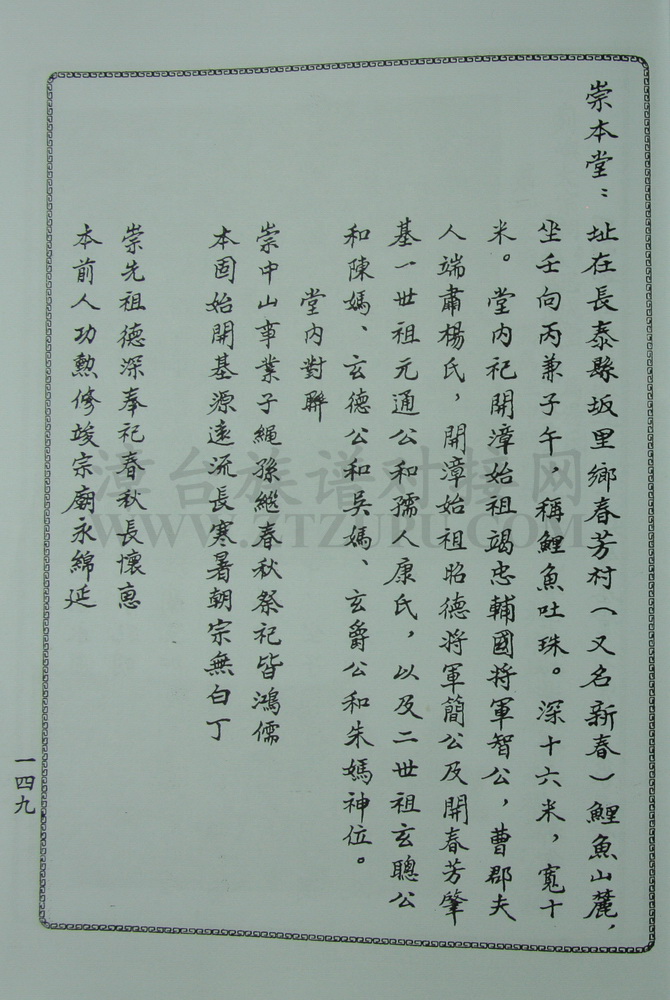 崇本堂：址在長泰縣坂里鄉春芳村（又名新春）鯉魚山麓，
坐壬向丙兼子午，稱鯉魚吐珠。深十六米，寬十
米。堂内祀開漳始祖竭忠輔國將軍智公，曹郡夫
人端肅楊氏，開漳始祖昭德將軍簡公及開春芳肇
基一世祖元通公和孺人康氏，以及二世祖玄聰公
和陳媽、玄德公和吳媽、玄爵公和朱媽神位。
堂内對聯
崇中山事業子繩孫繼春秋祭祀皆鴻儒
本固始開基源遠流長寒暑朝宗無白丁
崇先祖德深奉祀春秋長懷惠
本前人功勲修竣宗廟永綿延
一四九
漳台族谱对接网
WWW.ZTZUPU.COM